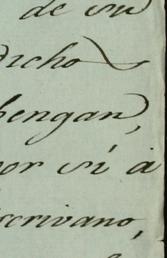 de su
dicho
bengan,
por sí à
escrivano,